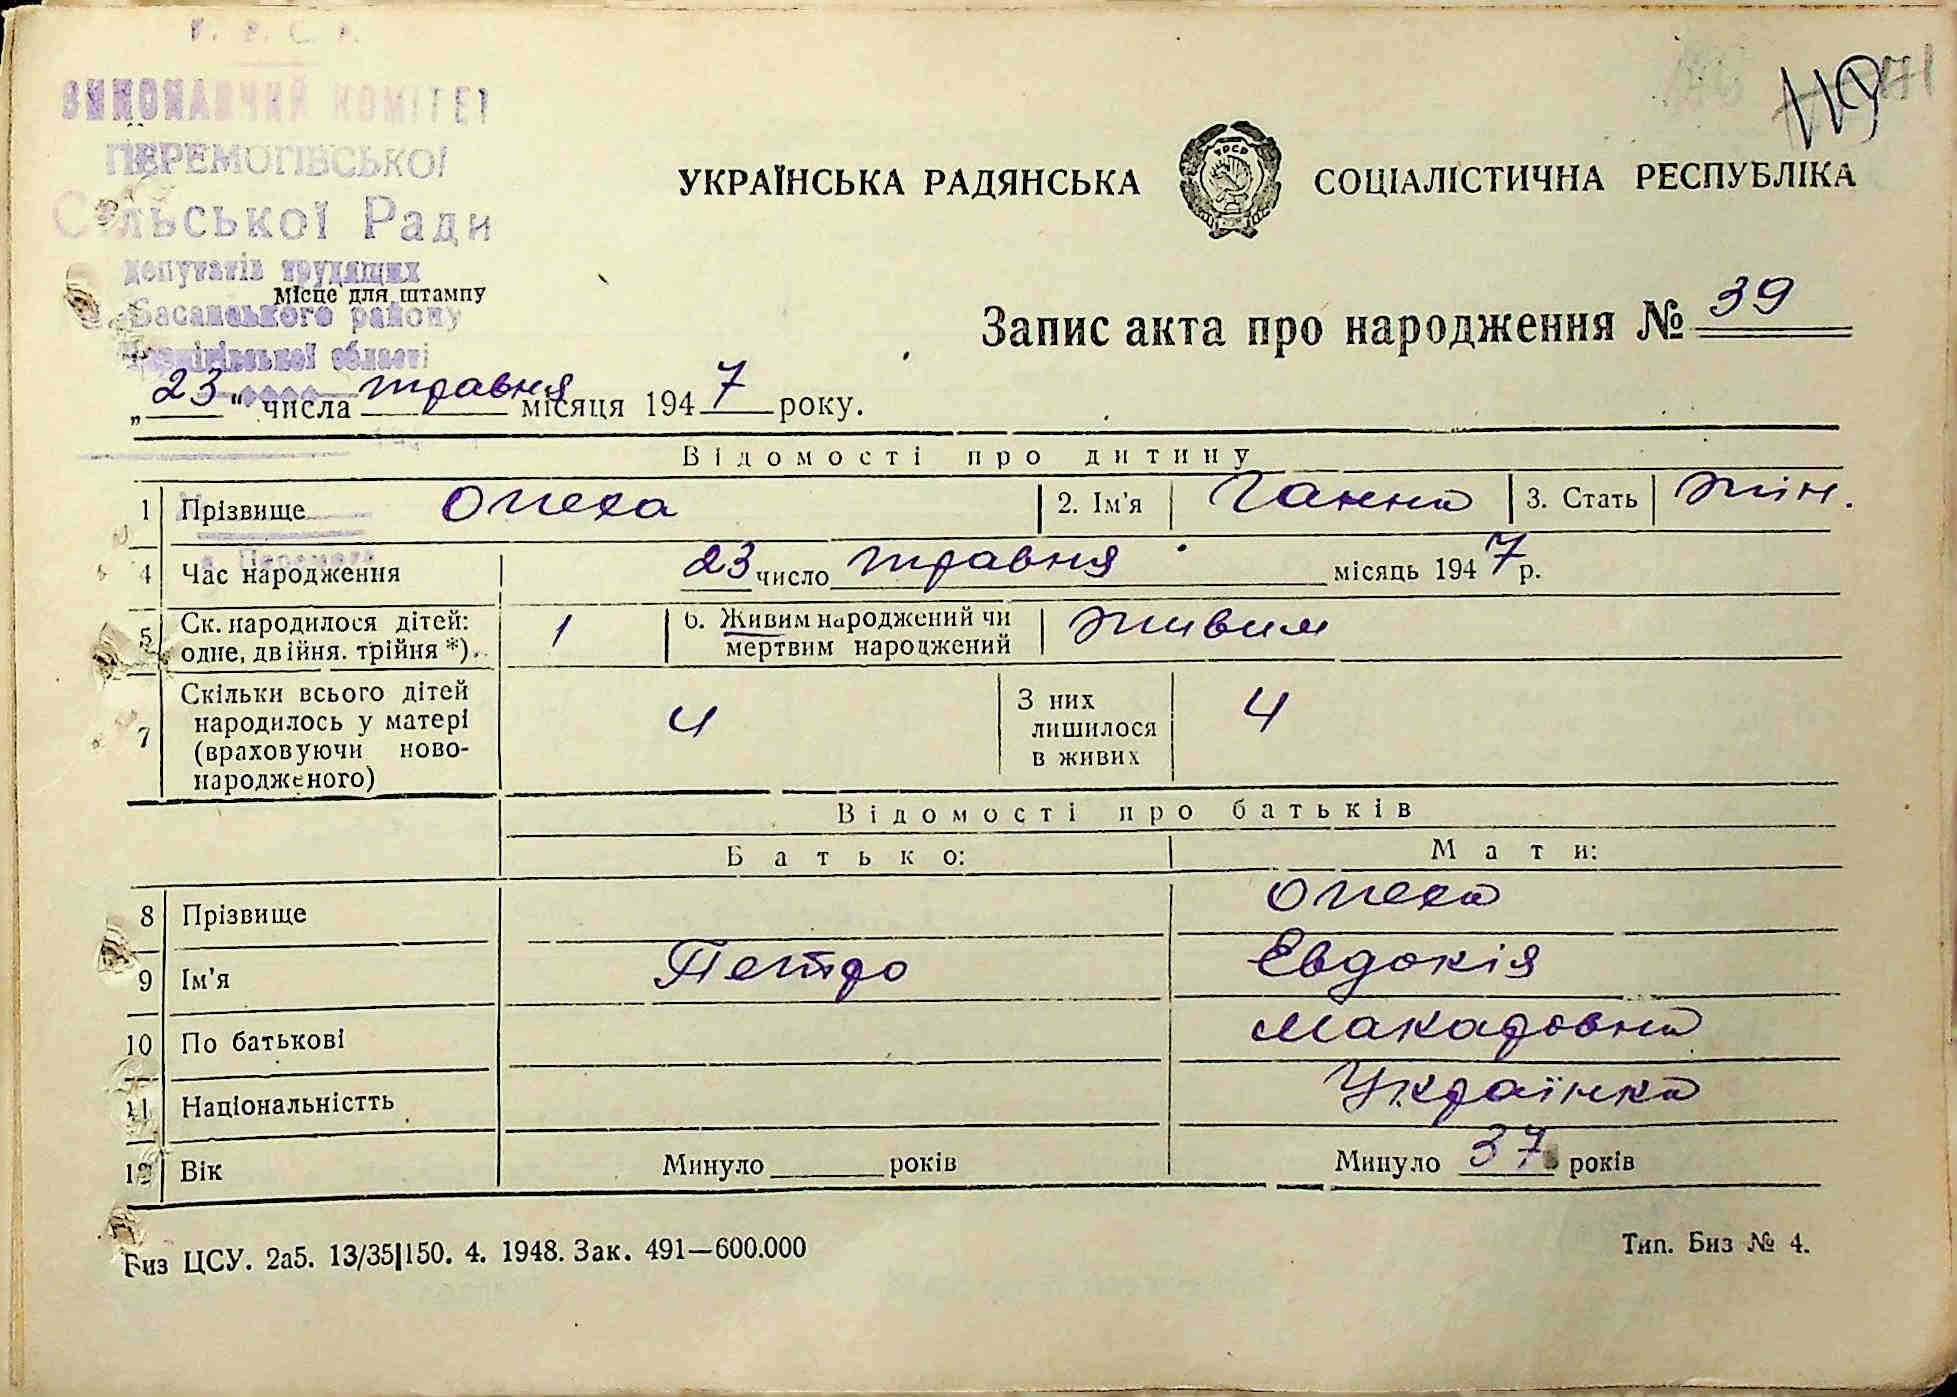 У. Р. С. Р.
ВИКОНАВЧИЙ КОМІТЕТ
ПЕРЕМОГІВСЬКОЇ
Сільської Ради
депутатів трудящих
Місце для штампу
Басанського району
Чернігівської області
119
УКРАЇНСЬКА РАДЯНСЬКА СОЦІАЛІСТИЧНА РЕСПУБЛІКА
Запис акта про народження № 39
„23“ числа травня місяця 1947 року.
Відомості про дитину
1 Прізвище Опеха 2. Ім'я Ганна 3. Стать жін.
4 Час народження 23 число травня місяць 1947 р.
5 Ск. народилося дітей: одне, двійня. трійня *). 1 6. Живим народжений чи мертвим народжений Живим
7 Скільки всього дітей народилось у матері (враховуючи ново-народженого) 4 З них лишилося в живих 4
Відомості про батьків
Батько: Мати:
8 Прізвище Опеха
9 Ім'я Петро Евдокія
10 По батькові Макаровна
11 Національністть Українка
12 Вік Минуло років Минуло 37 років
Биз ЦСУ. 2а5. 13/35|150. 4. 1948. Зак. 491—600.000 Тип. Биз № 4.